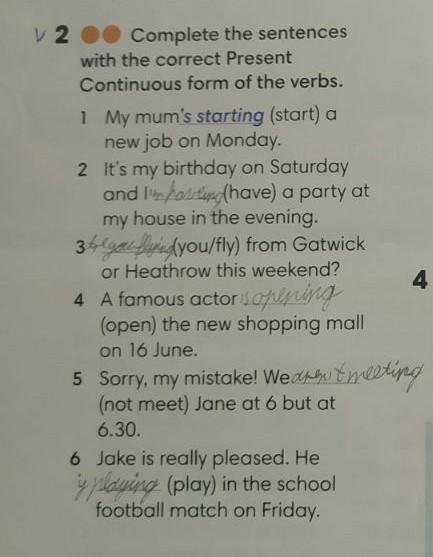 V 2 Complete the sentences
with the correct Present
Continuous form of the verbs.
1 My mum's starting (start) a
new job on Monday.
2 It's my birthday on Saturday
and I'm having (have) a party at
my house in the evening.
3 Are you flying (you/fly) from Gatwick
or Heathrow this weekend?
4 A famous actor is opening
(open) the new shopping mall
on 16 June.
4
5 Sorry, my mistake! We aren't meeting
(not meet) Jane at 6 but at
6.30.
6 Jake is really pleased. He
playing (play) in the school
football match on Friday.